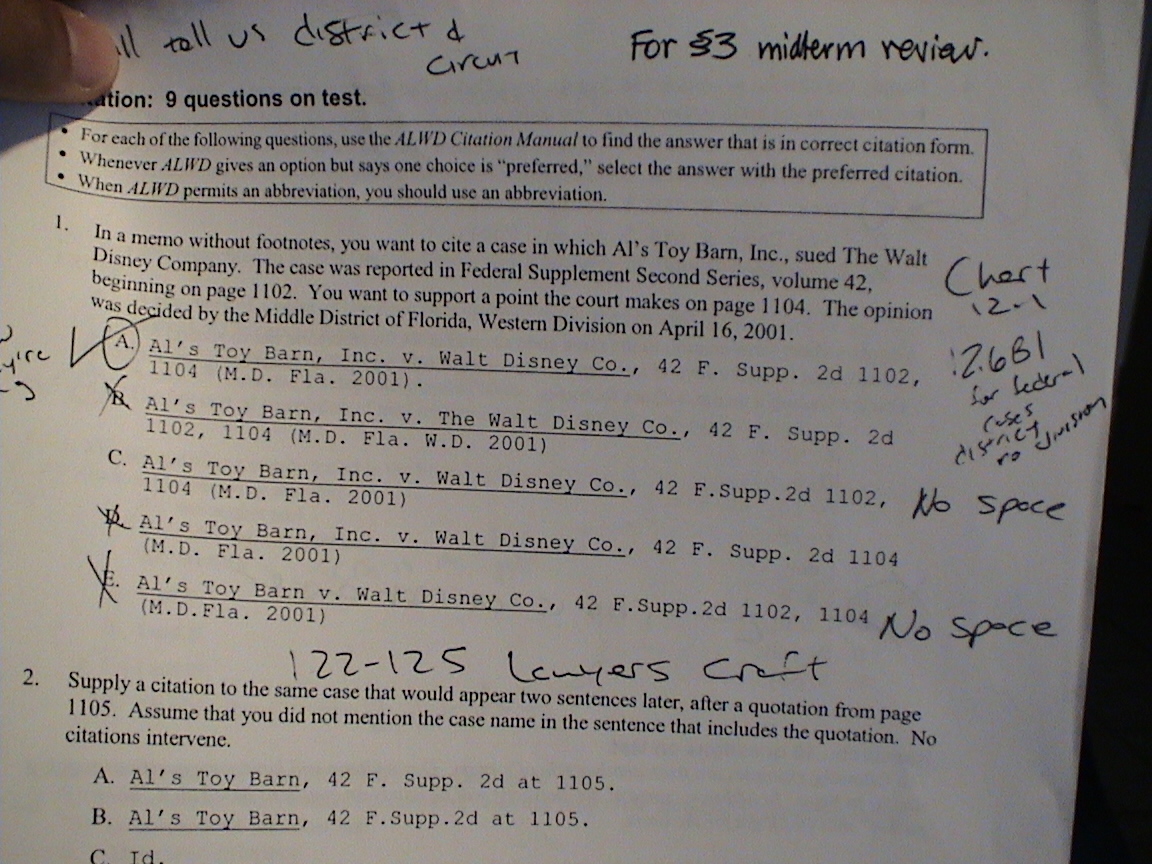 ll tell us district &
circuit
For §3 midterm review.
ation: 9 questions on test.
• For each of the following questions, use the ALWD Citation Manual to find the answer that is in correct citation form.
• Whenever ALWD gives an option but says one choice is “preferred,” select the answer with the preferred citation.
• When ALWD permits an abbreviation, you should use an abbreviation.
1. In a memo without footnotes, you want to cite a case in which Al’s Toy Barn, Inc., sued The Walt
Disney Company. The case was reported in Federal Supplement Second Series, volume 42,
beginning on page 1102. You want to support a point the court makes on page 1104. The opinion
was decided by the Middle District of Florida, Western Division on April 16, 2001.
Chart
12-1
A. Al's Toy Barn, Inc. v. Walt Disney Co., 42 F. Supp. 2d 1102,
1104 (M.D. Fla. 2001).
12.6B1
for federal
cases
district
no division
B. Al's Toy Barn, Inc. v. The Walt Disney Co., 42 F. Supp. 2d
1102, 1104 (M.D. Fla. W.D. 2001)
C. Al's Toy Barn, Inc. v. Walt Disney Co., 42 F.Supp.2d 1102,
1104 (M.D. Fla. 2001)
No space
D. Al's Toy Barn, Inc. v. Walt Disney Co., 42 F. Supp. 2d 1104
(M.D. Fla. 2001)
E. Al's Toy Barn v. Walt Disney Co., 42 F.Supp.2d 1102, 1104
(M.D.Fla. 2001)
No space
122-125 lawyers craft
2. Supply a citation to the same case that would appear two sentences later, after a quotation from page
1105. Assume that you did not mention the case name in the sentence that includes the quotation. No
citations intervene.
A. Al's Toy Barn, 42 F. Supp. 2d at 1105.
B. Al's Toy Barn, 42 F.Supp.2d at 1105.
C. Id.